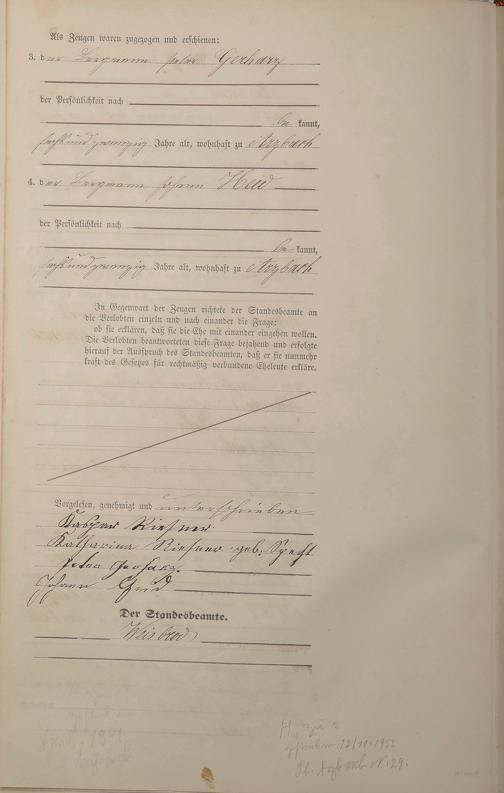 Als Zeugen waren zugezogen und erschienen:
3. der Bergmann Peter Gerharz
der Persönlichkeit nach
be kannt,
sechsundzwanzig Jahre alt, wohnhaft zu Arzbach
4. der Bergmann Johann Heid
der Persönlichkeit nach
be kannt,
sechsundzwanzig Jahre alt, wohnhaft zu Arzbach
In Gegenwart der Zeugen richtete der Standesbeamte an
die Verlobten einzeln und nach einander die Frage:
ob sie erklären, daß sie die Ehe mit einander eingehen wollen.
Die Verlobten beantworteten diese Frage bejahend und erfolgte
hierauf der Ausspruch des Standesbeamten, daß er sie nunmehr
kraft des Gesetzes für rechtmäßig verbundene Eheleute erkläre.
Vorgelesen, genehmigt und unterschrieben
Kaspar Kießner
Katharina Kießner geb: Specht
Peter Gerharz.
Johann Heid
Der Standesbeamte.
Weisbrod
H zu 2
gestorben 12/11.1952
St. Nr. 29.